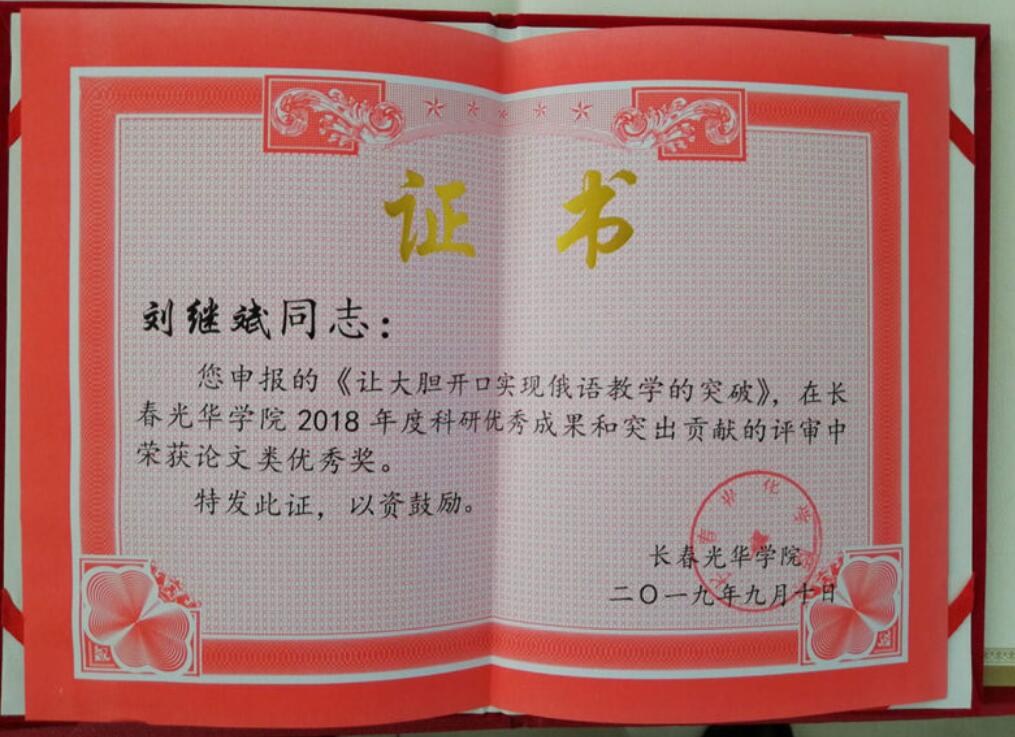 证书
刘继斌同志：
您申报的《让大胆开口实现俄语教学的突破》，在长
春光华学院 2018 年度科研优秀成果和突出贡献的评审中
荣获论文类优秀奖。
特发此证，以资鼓励。
长春光华学院
二〇一九年九月十日